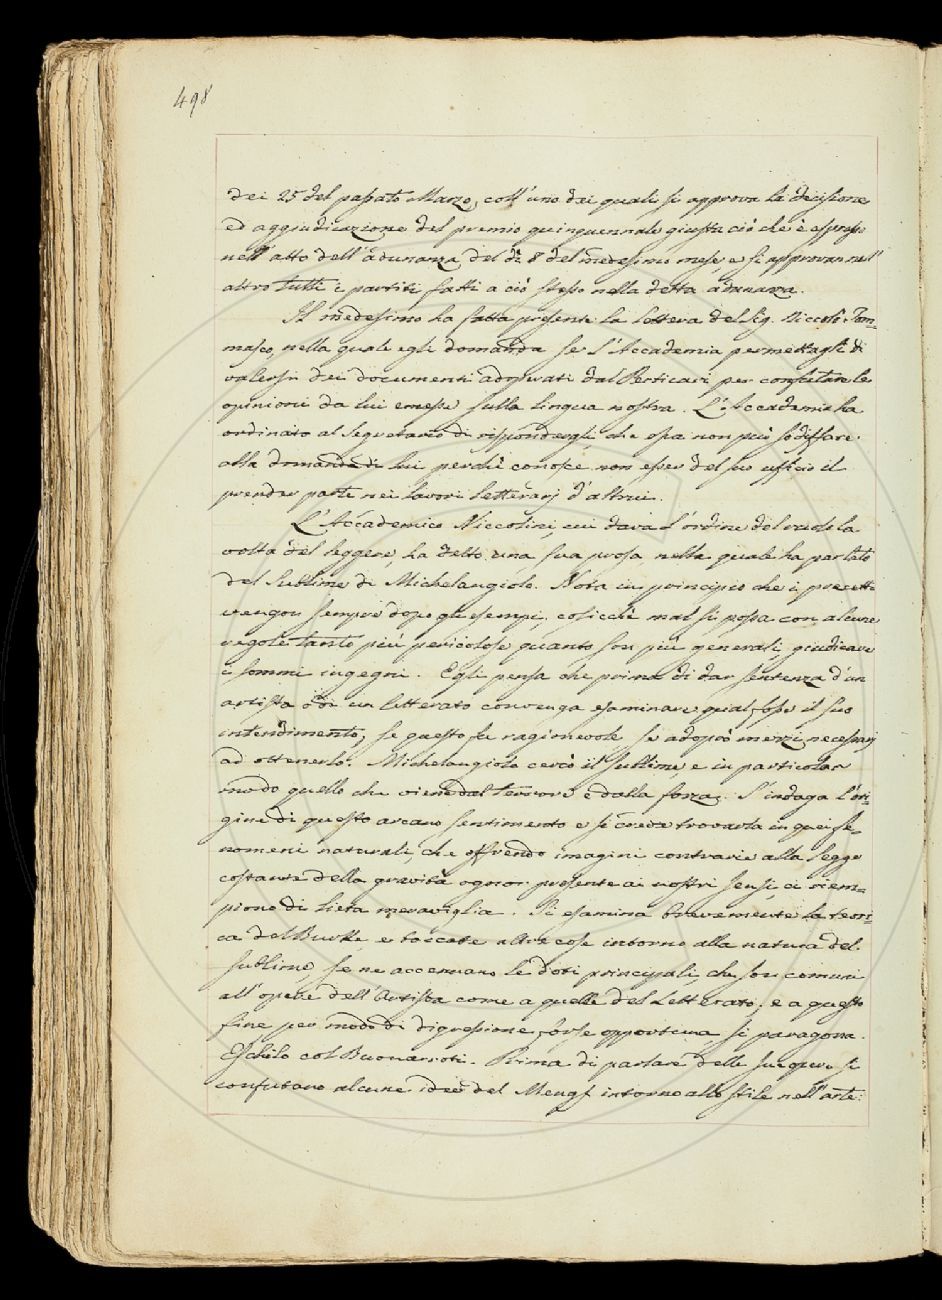 498
dei 25 del passato Marzo, coll'uno dei quali si approva la decisione
ed aggiudicazione del premio quinquennale giusta ciò che è espresso
nell'atto dell'adunanza del dì 8 del medesimo mese, e si approvan nell'
altro tutti i partiti fatti a ciò stesso nella detta adunanza.
Il medesimo ha fatta presente la lettera del Sig. Niccolò Tom=
maseo, nella quale egli domanda se l'Accademia permettagli di
valersi dei documenti adoprati dal Perticari per confutare le
opinioni da lui emesse sulla lingua nostra. L'Accademia ha
ordinato al Segretario di rispondergli che essa non può sodisfare
alla domanda di lui perchè conosce non esser del suo uffizio il
prender parte nei lavori letterarj d'altrui.
L'Accademico Niccolini, cui dava l'ordine del ruolo la
volta del leggere, ha detto una sua prosa nella quale ha parlato
del Sublime di Michelangiolo. Nota in principio che i precetti
vengon sempre dopo gli esempi, cosicchè mal si possa con alcune
regole tanto più pericolose quanto son più generali, giudicare
i sommi ingegni. Egli pensa che prima di dar sentenza d'un
artista o di un letterato convenga esaminare qual fosse il suo
intendimento; se questo fu ragionevole se adoprò mezzi necessarj
ad ottenerlo. Michelangiolo cercò il sublime, e in particolar
modo quello che viene dal terrore e dalla forza. S'indaga l'ori=
gine di questo arcano sentimento e si crede trovarla in quei fe=
nomeni naturali, che offrendo imagini contrarie alla legge
costante della gravità ognor presente ai nostri sensi, ci riem=
piono di lieta meraviglia. Si esamina brevemente la teori=
ca del Burke e toccate altre cose intorno alla natura del
sublime, se ne accennano le doti principali, che son comuni
all'opere dell'Artista come a quelle del Letterato; e a questo
fine per modo di digressione, forse opportuna, si paragona
Eschilo col Buonarroti. Prima di parlare delle sue opere si
confutano alcune idee del Mengs intorno allo stile nell'arte: